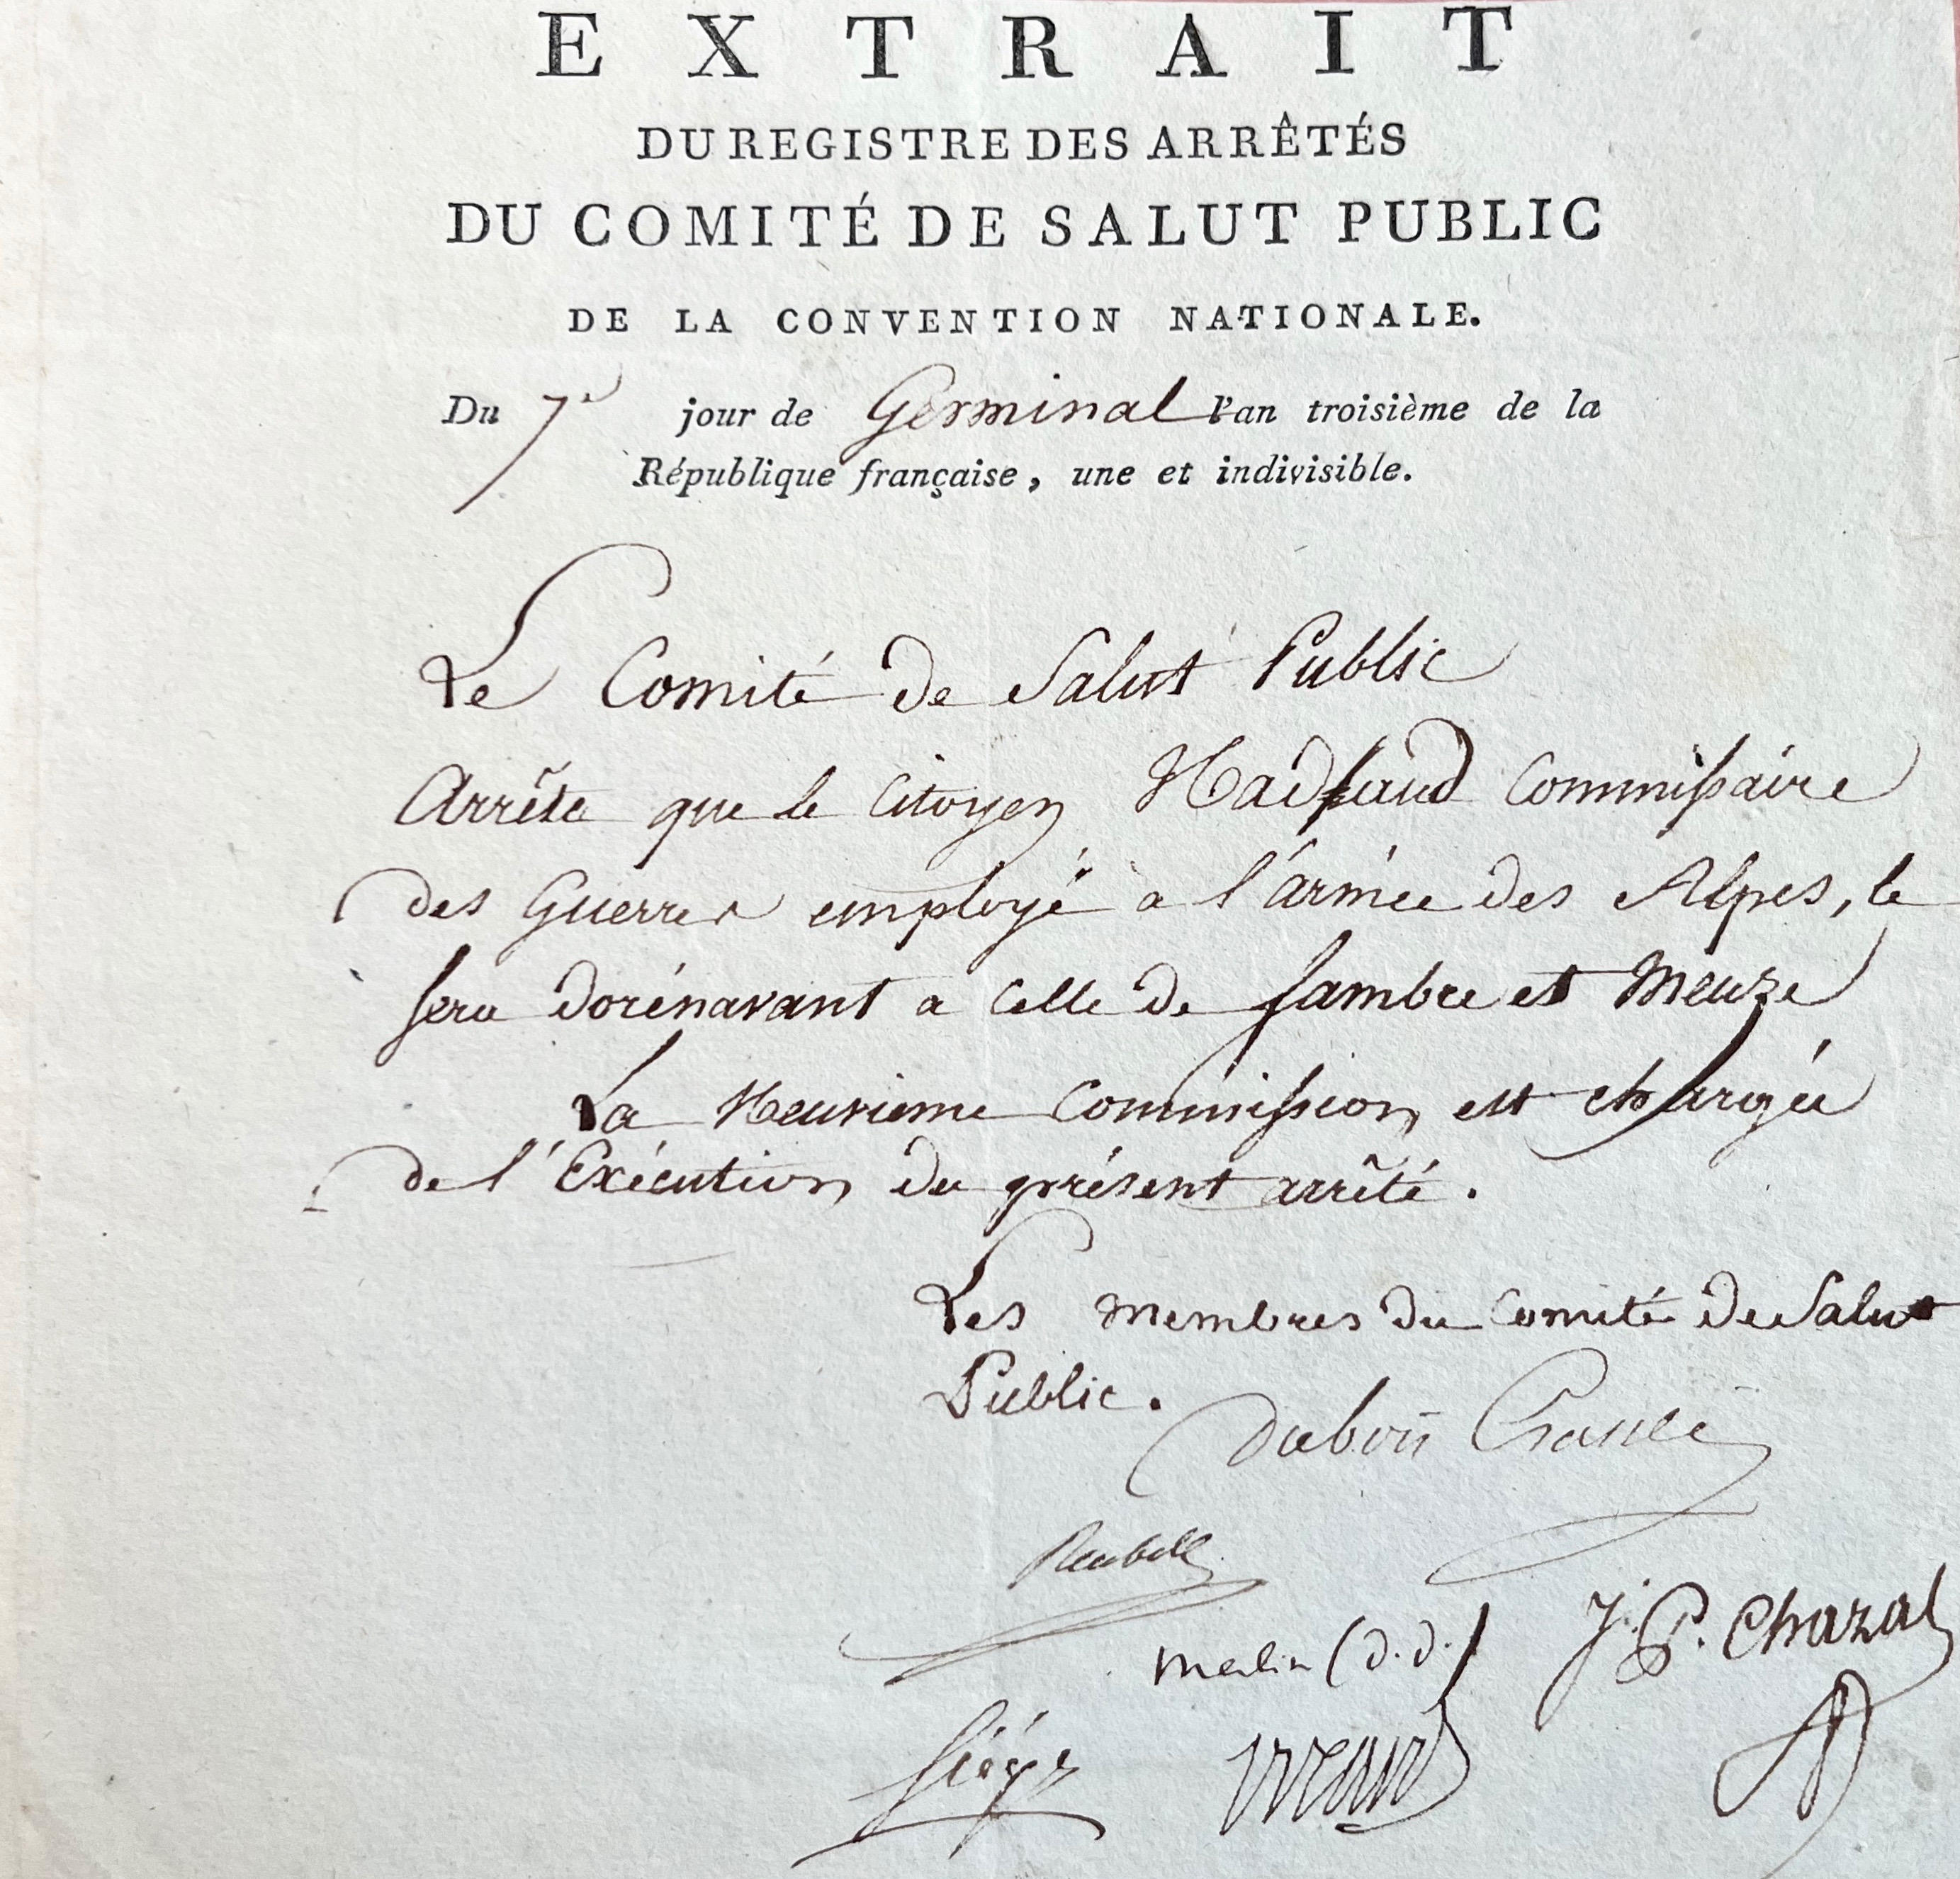 EXTRAIT
DU REGISTRE DES ARRÊTÉS
DU COMITÉ DE SALUT PUBLIC
DE LA CONVENTION NATIONALE.
Du 7e jour de Germinal l'an troisième de la
République française, une et indivisible.
Le Comité de Salut Public
Arrête que le Citoyen Commissaire
des Guerres employé à l'armée des Alpes, le
sera dorénavant a celle de Sambre et Meuze
La Neuvieme Commission est chargée
de l'Exécution du présent arrêté.
Les membres du Comité de Salut
Public.
Dubois Crancé
Reubell
Merlin (d.d.)
J. P. Chazal
Sieyes